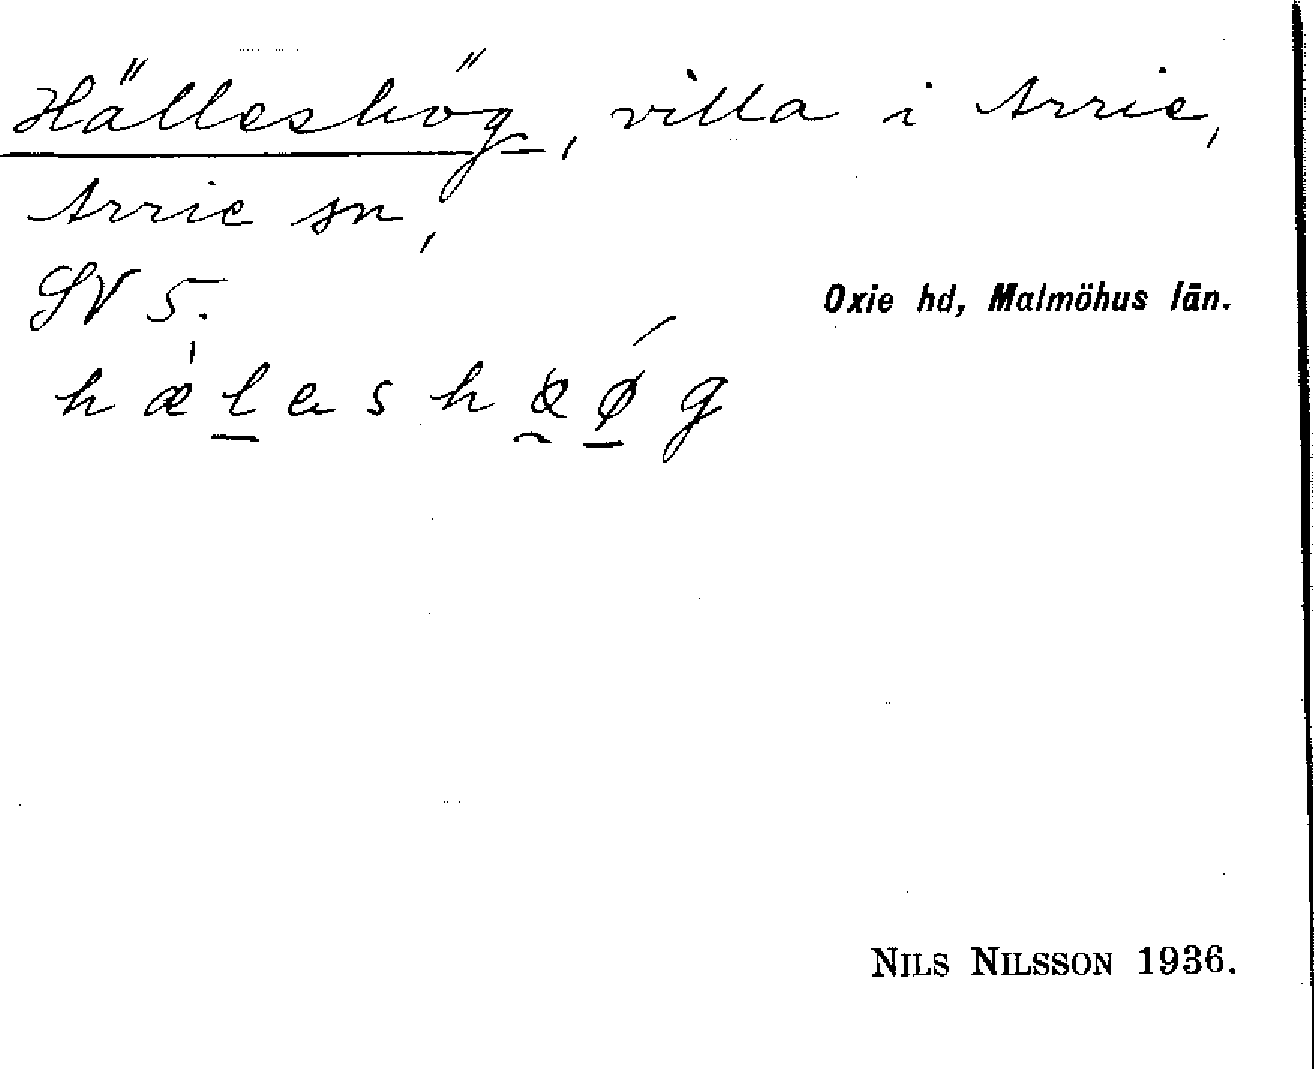 Hälleshög, villa i Arrie,
Arrie sn,
SV 5.
Oxie hd, Malmöhus län.
NILS NILSSON 1936.